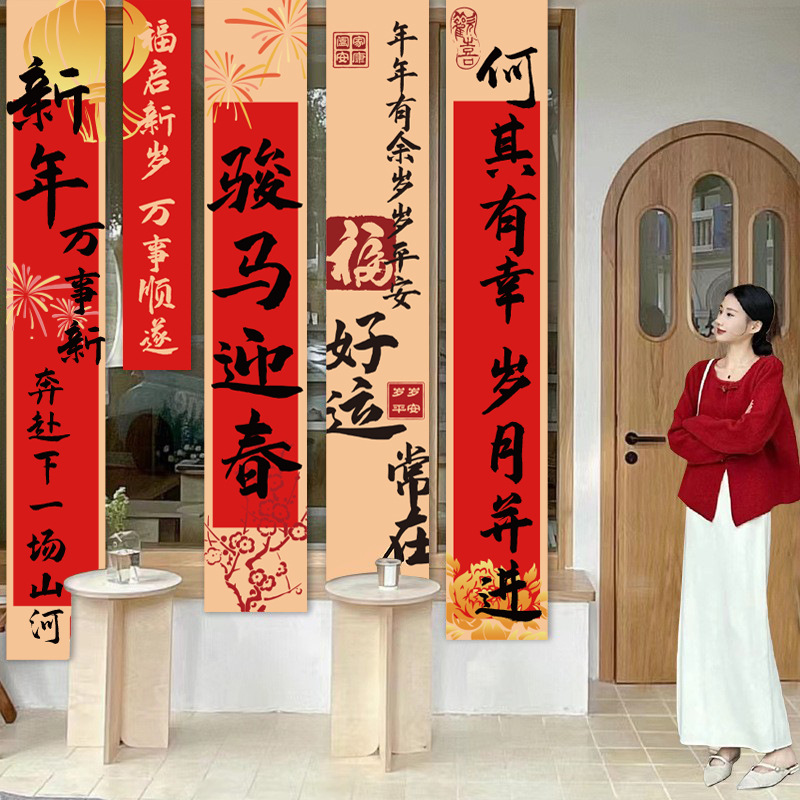 新年
万事新
奔赴下一场山河
福启新岁 万事顺遂
骏马迎春
家康
闔安
年年有余岁岁平安
福
好运
岁岁
平安
常在
歡喜
何其有幸 岁月并进